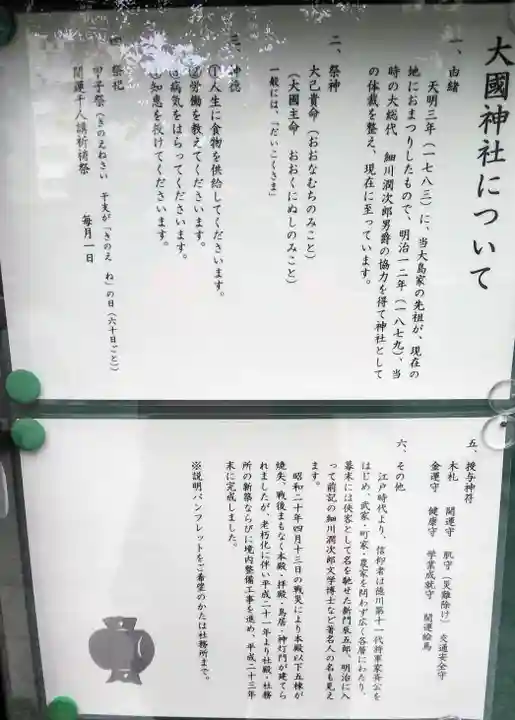 大國神社について
一、由緒
天明三年（一七八三）に、当大島家の先祖が、現在の
地におまつりしたもので、明治一二年（一八七九）、当
時の大総代 細川潤次郎男爵の協力を得て神社として
の体裁を整え、現在に至っています。
二、祭神
大己貴命（おおなむちのみこと）
（大國主命 おおくにぬしのみこと）
一般には、「だいこくさま」
三、神徳
①人生に食物を供給してくださいます。
②労働を教えてくださいます。
③病気をはらってくださいます。
④知恵を授けてくださいます。
四、祭祀
甲子祭（きのえねさい 干支が「きのえ ね」の日（六十日ごと））
開運千人講祈祷祭 毎月一日
五、授与神符
木札 開運守 肌守（災難除け） 交通安全守
金運守 健康守 学業成就守 開運絵馬
六、その他
江戸時代より、信仰者は徳川第十一代将軍家斉公を
はじめ、武家・町家・農家を問わず広く各層にわたり、
幕末には侠客として名を馳せた新門辰五郎、明治に入
って前記の細川潤次郎文学博士など著名人の名も見え
ます。
昭和二十年四月十三日の戦災により本殿以下五棟が
焼失、戦後まもなく本殿・拝殿・鳥居・神灯門が建てら
れましたが、老朽化に伴い平成二十一年より社殿・社務
所の新築ならびに境内整備工事を進め、平成二十三年
末に完成しました。
※説明パンフレットをご希望のかたは社務所まで。